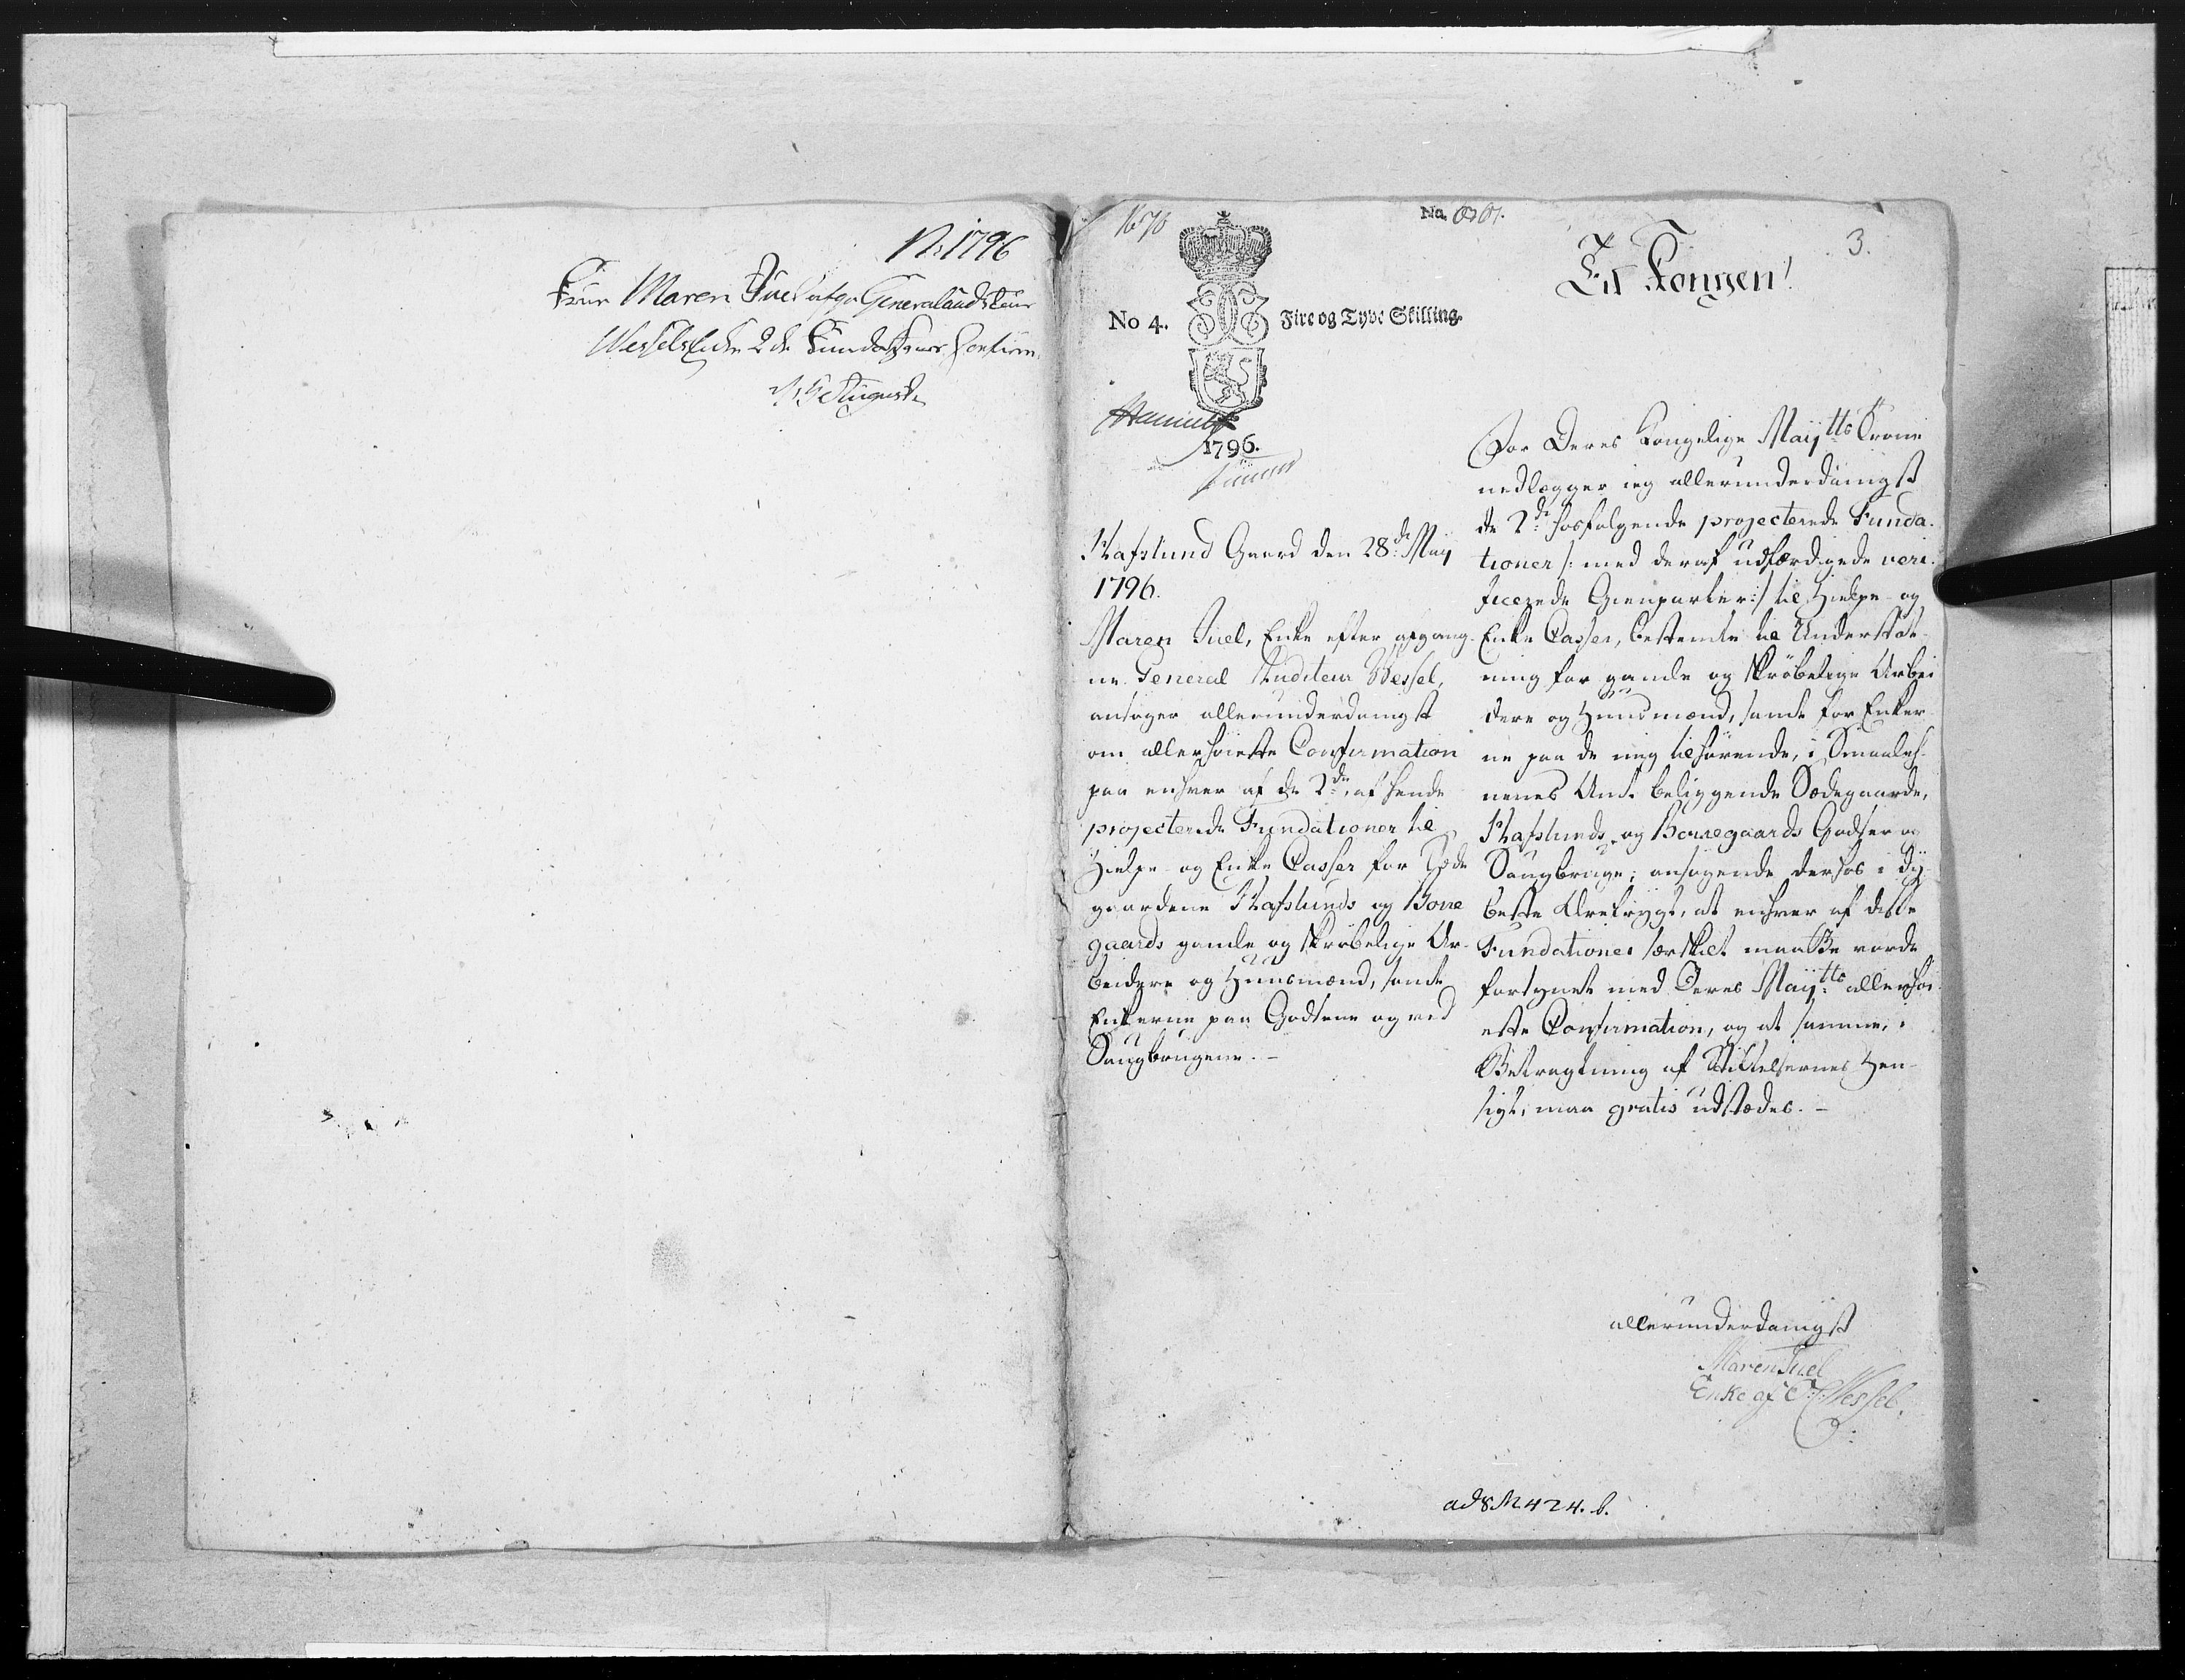 No 1796
Frue Maren Juel afg: Generalauditeur
Wessels Enke 2de Fundatsers Confirm.
5 August
1676
No. 6761.
3.
Til Kongen!
No 4. Fire og Tyve Skilling.
1796.
Hafslund Gaard den 28de Maÿ
1796.
Maren Juel, Enke efter afgang-
ne General Auditeur Wessel,
ansøger allerunderdanigst
om allerhøieste Confirmation
paa enhver af de 2de, af hende
projecterede Fundationer til
Hielpe- og Enke Casser for Sæde
gaardene Hafslunds og Borre
gaards gamle og skrøbelige Ar-
beidere og Huusmænd, samt
Enkerne paa Godsene og ved
Saugbrugene.-
For Deres Kongelige Maÿtts Trone
nedlægger ieg allerunderdanigst
de 2de hosfølgende projecterede Funda-
tioner /: med deraf udfærdigede veri-
ficerede Gienparter :/ til Hielpe- og
Enke Casser, bestemte til Understøt-
ning for gamle og skrøbelige Arbei
dere og Huusmænd, samt for Enker-
ne paa de mig tilhørende, i Smaaleh-
nenes Amt beliggende Sædegaarde,
Hafslunds og Borregaards Godser og
Saugbruge; ansøgende derhos i dÿ-
beste Ærefrygt, at enhver af disse
Fundationer særskilt maatte vorde
forsynet med Deres Maÿtts allerhøi-
este Confirmation, og at samme, i
Betragtning af Stiftelsernes Hen-
sigt, maa gratis udstædes.-
allerunderdanigst
Maren Juel
Enke af Wessel.
ad 8 M 424. b.